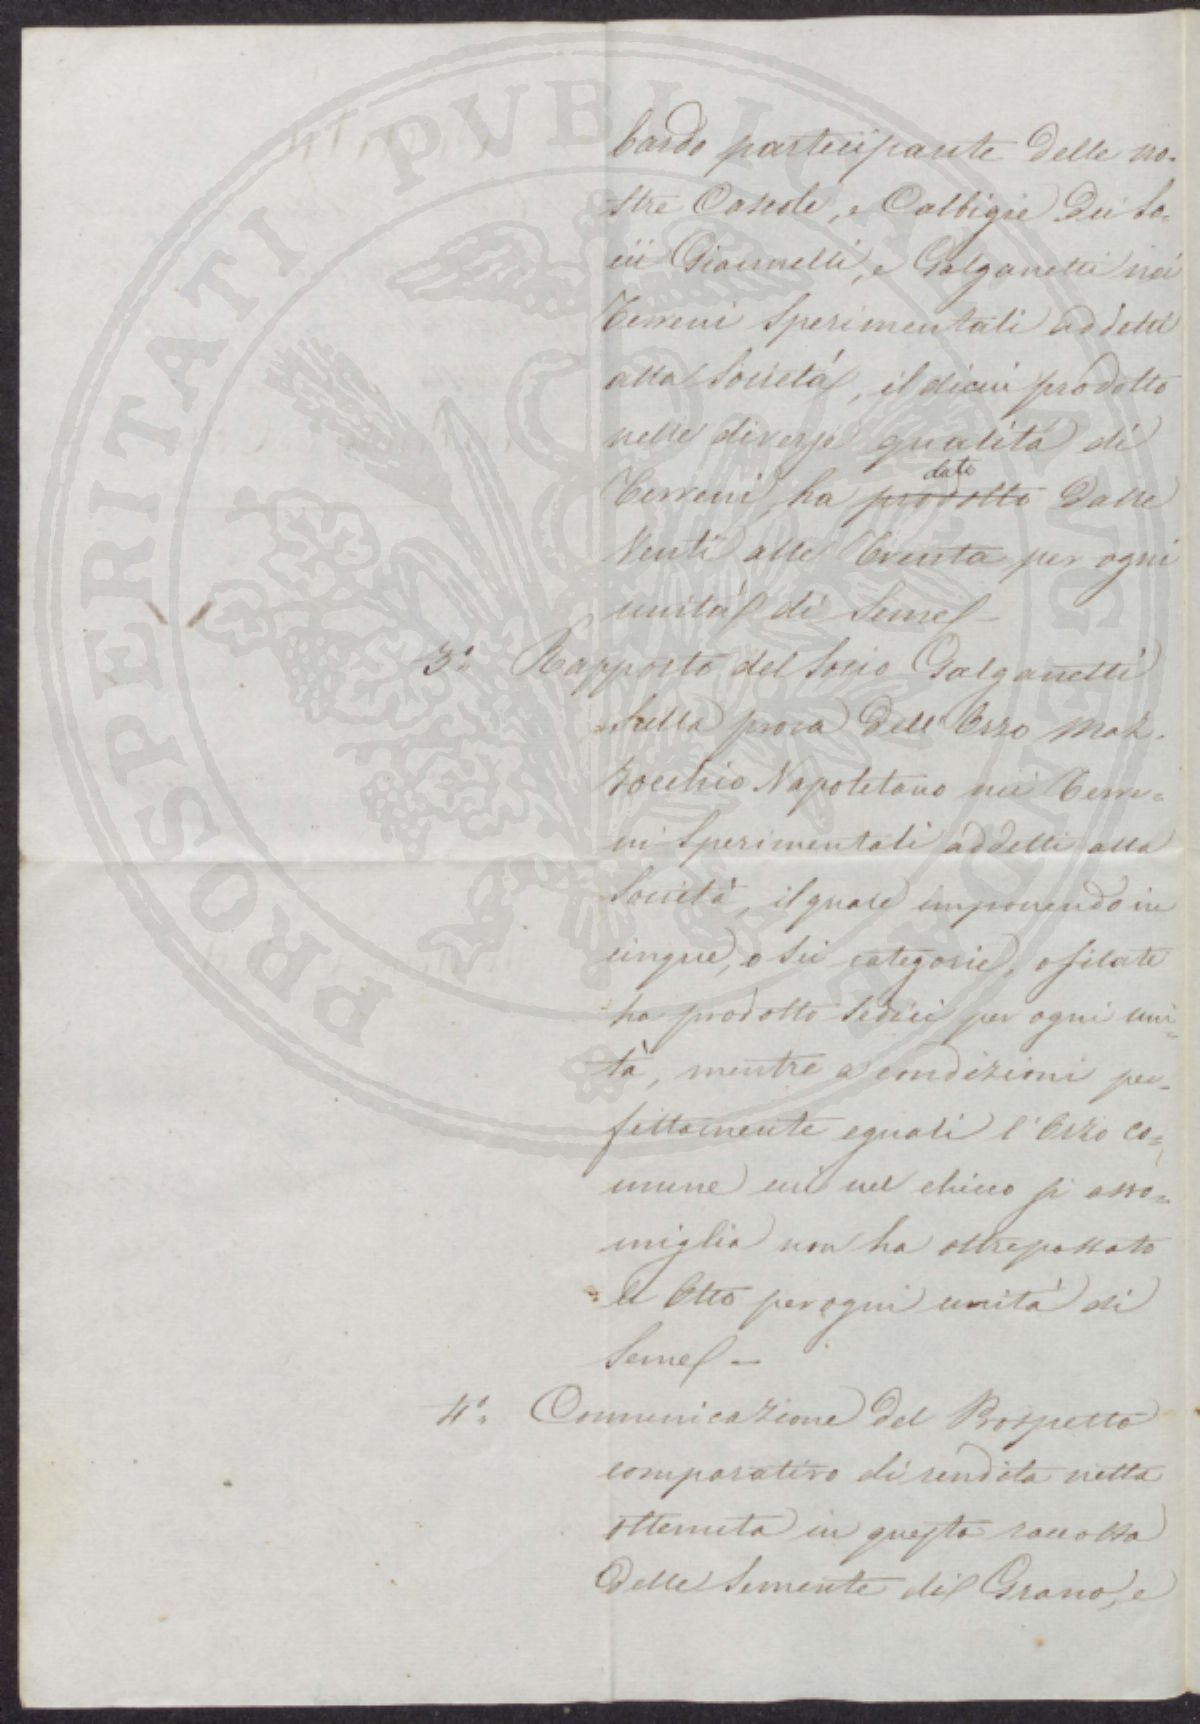 bardo partecipante delle no-
stre Cascole, e Calbigie dei So-
cii Giannelli, e Galganetti nei
Terreni Sperimentali addetti
alla Società, il di cui prodotto
nelle diverse qualità di
Terreni, ha prodotto date dalle
Venti alle Trenta per ogni
unità di Seme -
3.° Rapporto del Socio Galganetti
sulla prova dell'Orzo Maz-
zocchio Napoletano nei Terre-
ni Sperimentali addetti alla
Società, il quale imponendo in
cinque, o sei categorie, o filate
ha prodotto sedici per ogni uni-
tà, mentre a condizioni per-
fettamente eguali l'Orzo co-
mune cui nel chicco si asso-
miglia non ha oltrepassato
le Otto per ogni unità di
Seme -
4.° Comunicazione del Prospetto
comparativo di rendita netta
ottenuta in questa raccolta
delle Semente di Grano, e
PROSPERITATI PVBLICAE AVGENDAE